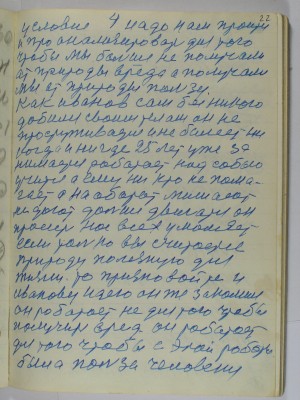 22
условия 4 надо нам прийти
и проанализировал для того
чтобы мы больше не получали
от природы вреда а получали
мы от природы пользу.
Как Иванов сам бы никого
добился своим телом он не
простуживается и не болеет ни
когда и ни где 25 лет уже за
нимаюсь работает над собою
учится а ему ни кто не пома-
гает а на оборот мешают
не дают дальше двигаться он
просит нас всех умоляет
если только вы считаете
природу полезную для
жизни. то признавайте и
Иванову идею он же закалился
он работает не для того чтобы
получил вред он работает
для того чтобы с этой работы
была польза человеку